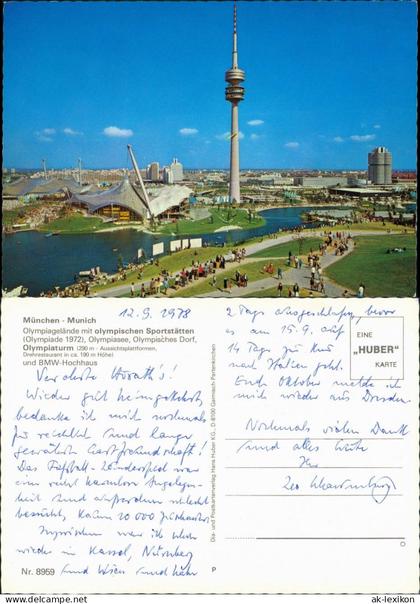 München - Munich
Olympiagelände mit olympischen Sportstätten
(Olympiade 1972), Olympiasee, Olympisches Dorf,
Olympiaturm (290 m - Aussichtsplattformen,
Drehrestaurant in ca. 190 m Höhe)
und BMW-Hochhaus
12.9.1978
Verehrte
Wieder gut heimgekehrt,
bedanke ich mich nochmals
für herzliche und lange
gewährte Gastfreundschaft!
Das Fußball-Länderspiel war
eine recht
heit und außerdem schlecht
besucht, kaum 20 000 Zuschauer.
Inzwischen war ich schon
wieder in Kassel, Nürnberg
und Wien und habe
Nr. 8959
Dia- und Postkartenverlag Hans Huber KG., D 8100 Garmisch-Partenkirchen
P
2 Tage ausschlafen, bevor
es am 15.9. auf
14 Tage zur Kur
nach Italien geht.
Ende Oktober melde ich
mich wieder aus Dresden.
Nochmals vielen Dank
und alles Gute
Ihr
EINE
"HUBER"
KARTE
www.ak-ansichtskarten.de
ak-lexikon.com